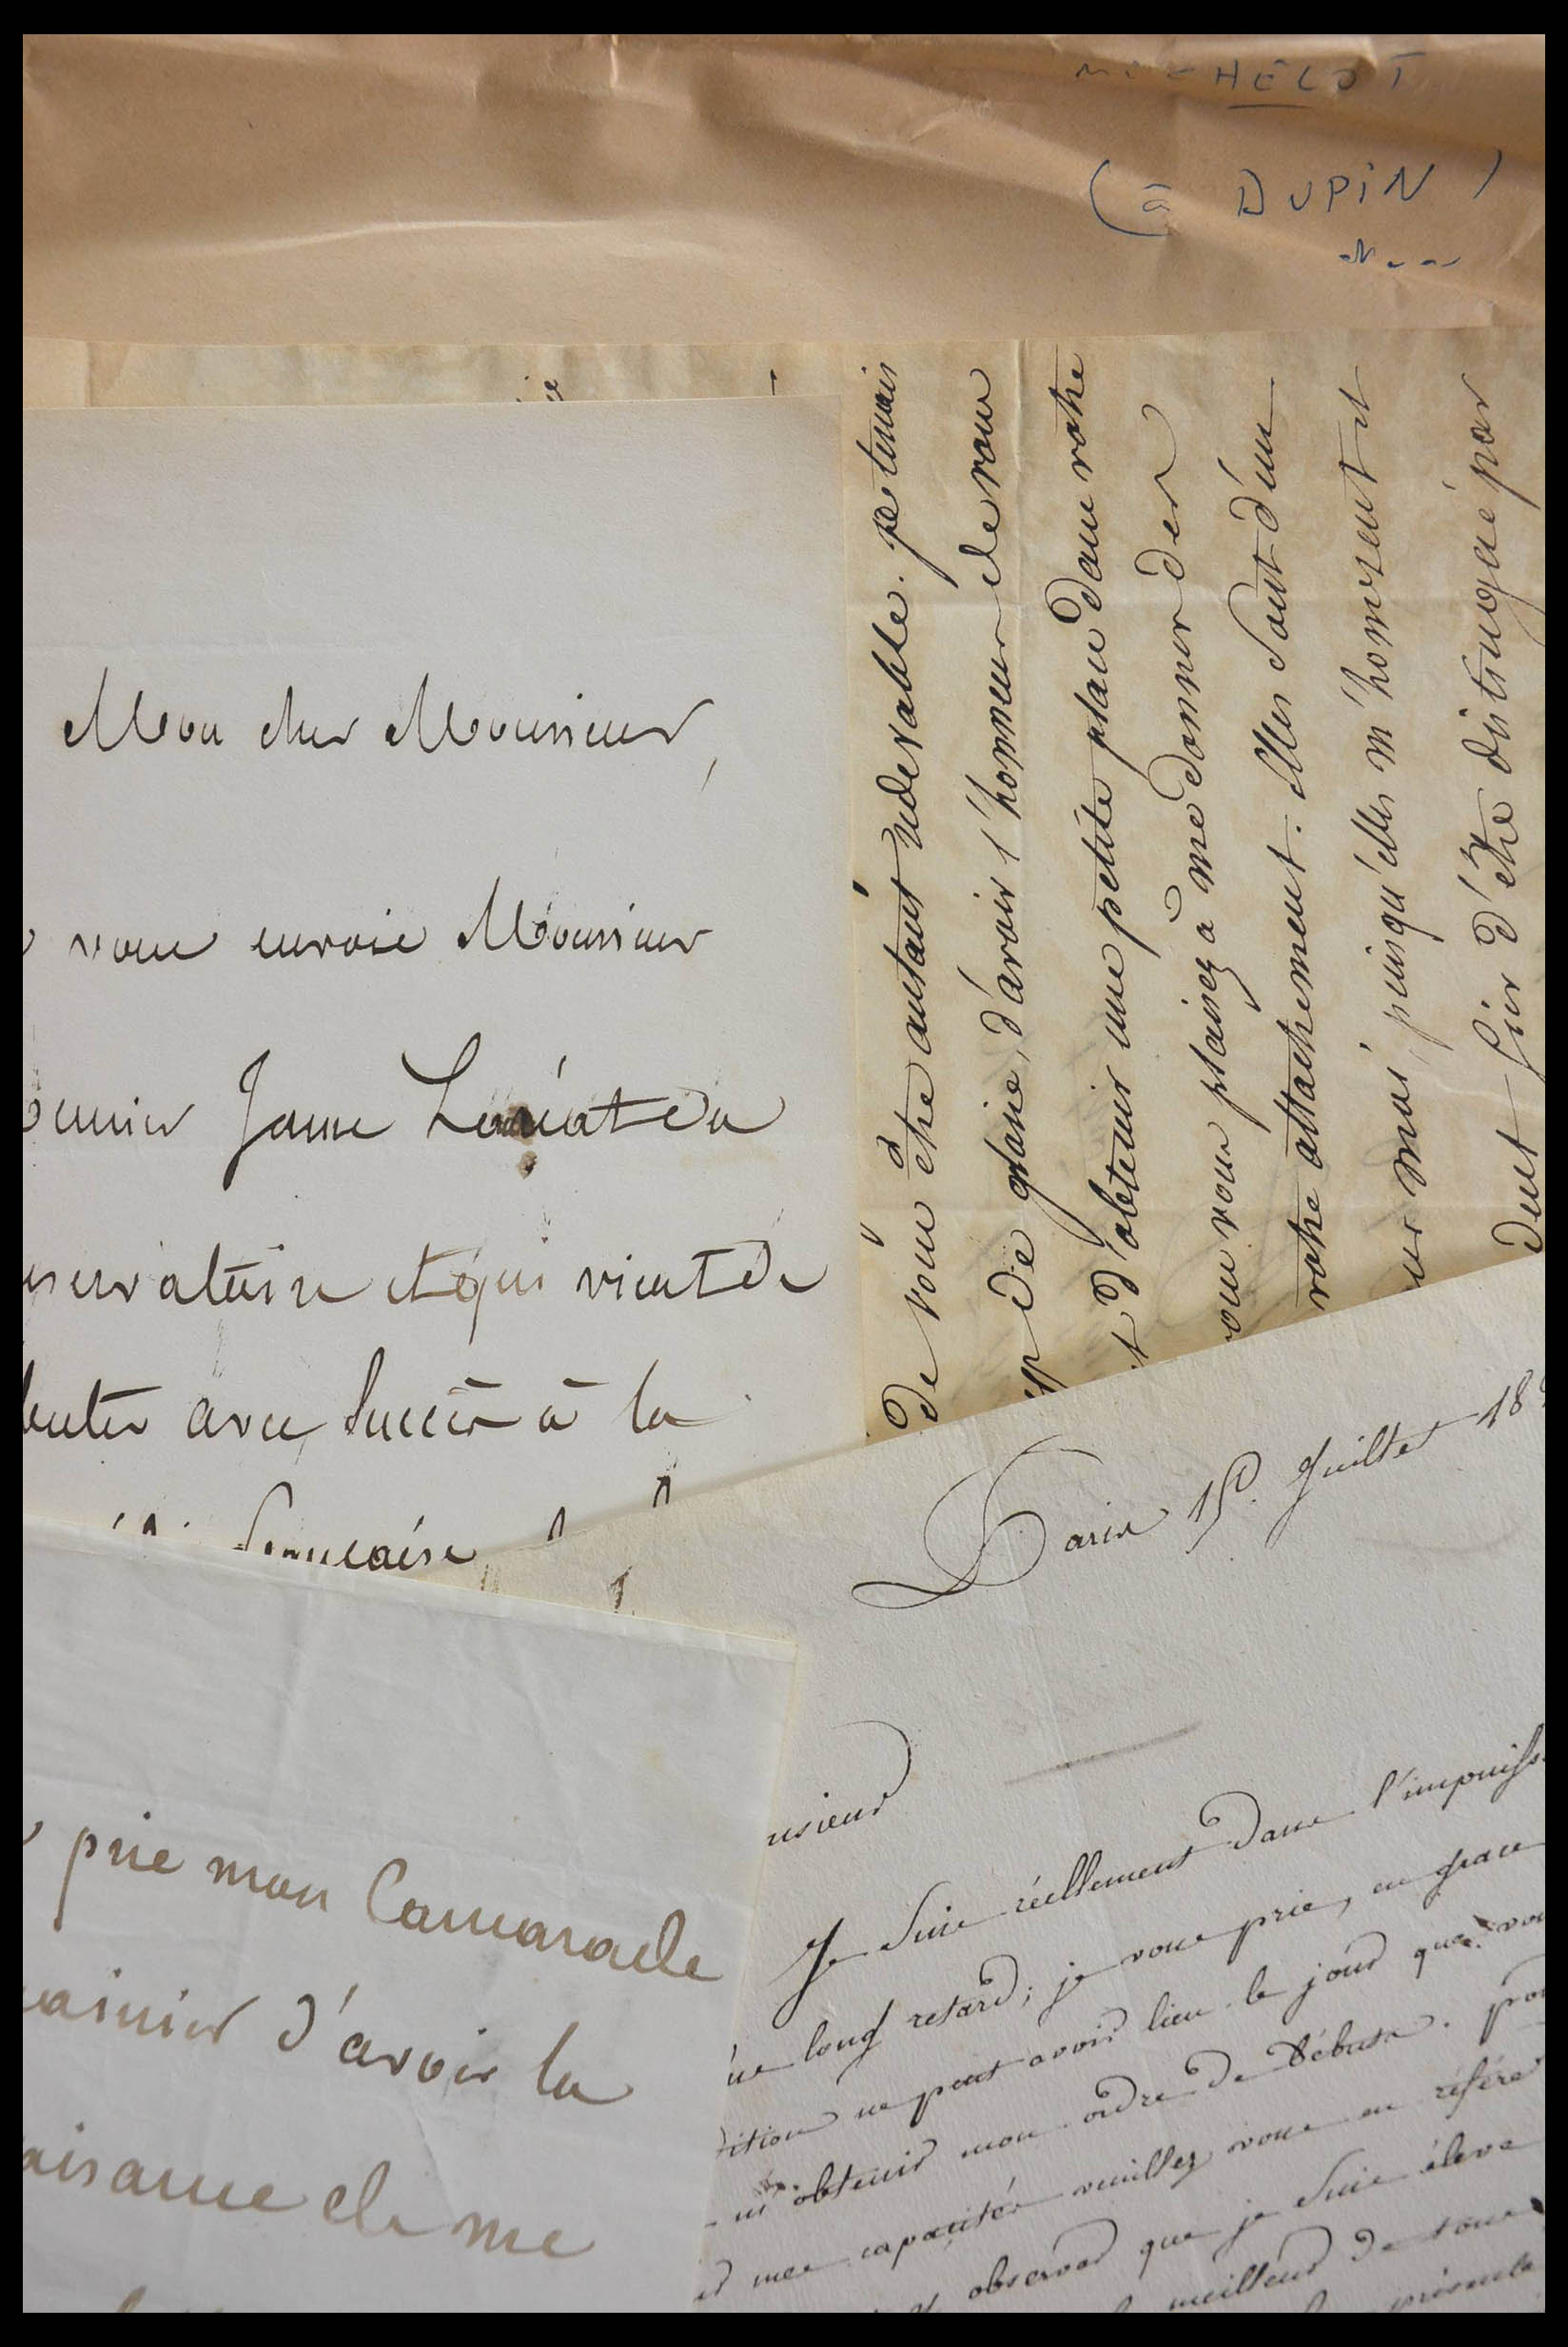 MICHELOT
(à DUPIN)
Mon cher Monsieur,
vous envoie Monsieur
Jame du
servatoire et qui vient de
buter avec succès à la
française
prie mon Camarade
d'avoir la
aisance de me
De vous être autant redevable. je tenais
de gloire, d'avoir l'honneur de vous
et d'obtenir une petite place dans votre
vous vous plaisez à me donner des
votre attachement. Elles sont d'un
moi, puisqu'elles m'honorent et
dent fier d'être distingué par
Paris 15 Juillet 18
nsieur
Je suis réellement dans l'impuiss
ue long retard; je vous prie, en grace
ition ne peut avoir lieu le jour que vou
m'obtenir mon ordre de débuts. pou
mes capacités veuillez vous en référer
observer que je suis élève
meilleur de tous